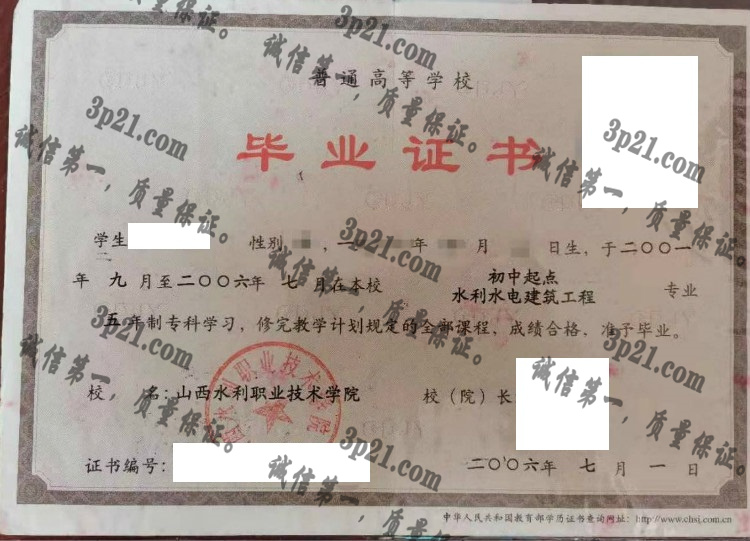 普通高等学校
毕业证书
学生 性别 ,一 年 月 日生,于二〇〇一
年 九 月至二〇〇六年 七 月在本校 初中起点 水利水电建筑工程 专业
五 年制专科学习,修完教学计划规定的全部课程,成绩合格,准予毕业。
校 名:山西水利职业技术学院
校(院)长
证书编号:
二〇〇六年 七 月 一 日
中华人民共和国教育部学历证书查询网址:http://www.chsi.com.cn
山西水利职业技术学院
3p21.com
诚信第一,质量保证。
3p21.com
诚信第一,质量保证。
3p21.com
诚信第一,质量保证。
3p21.com
诚信第一,质量保证。
3p21.com
诚信第一,质量保证。
3p21.com
诚信第一,质量保证。
3p21.com
诚信第一,质量保证。
3p21.com
诚信第一,质量保证。
质量保证。